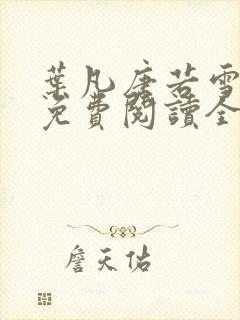 葉凡唐若雪
免費閱讀全
詹天佑